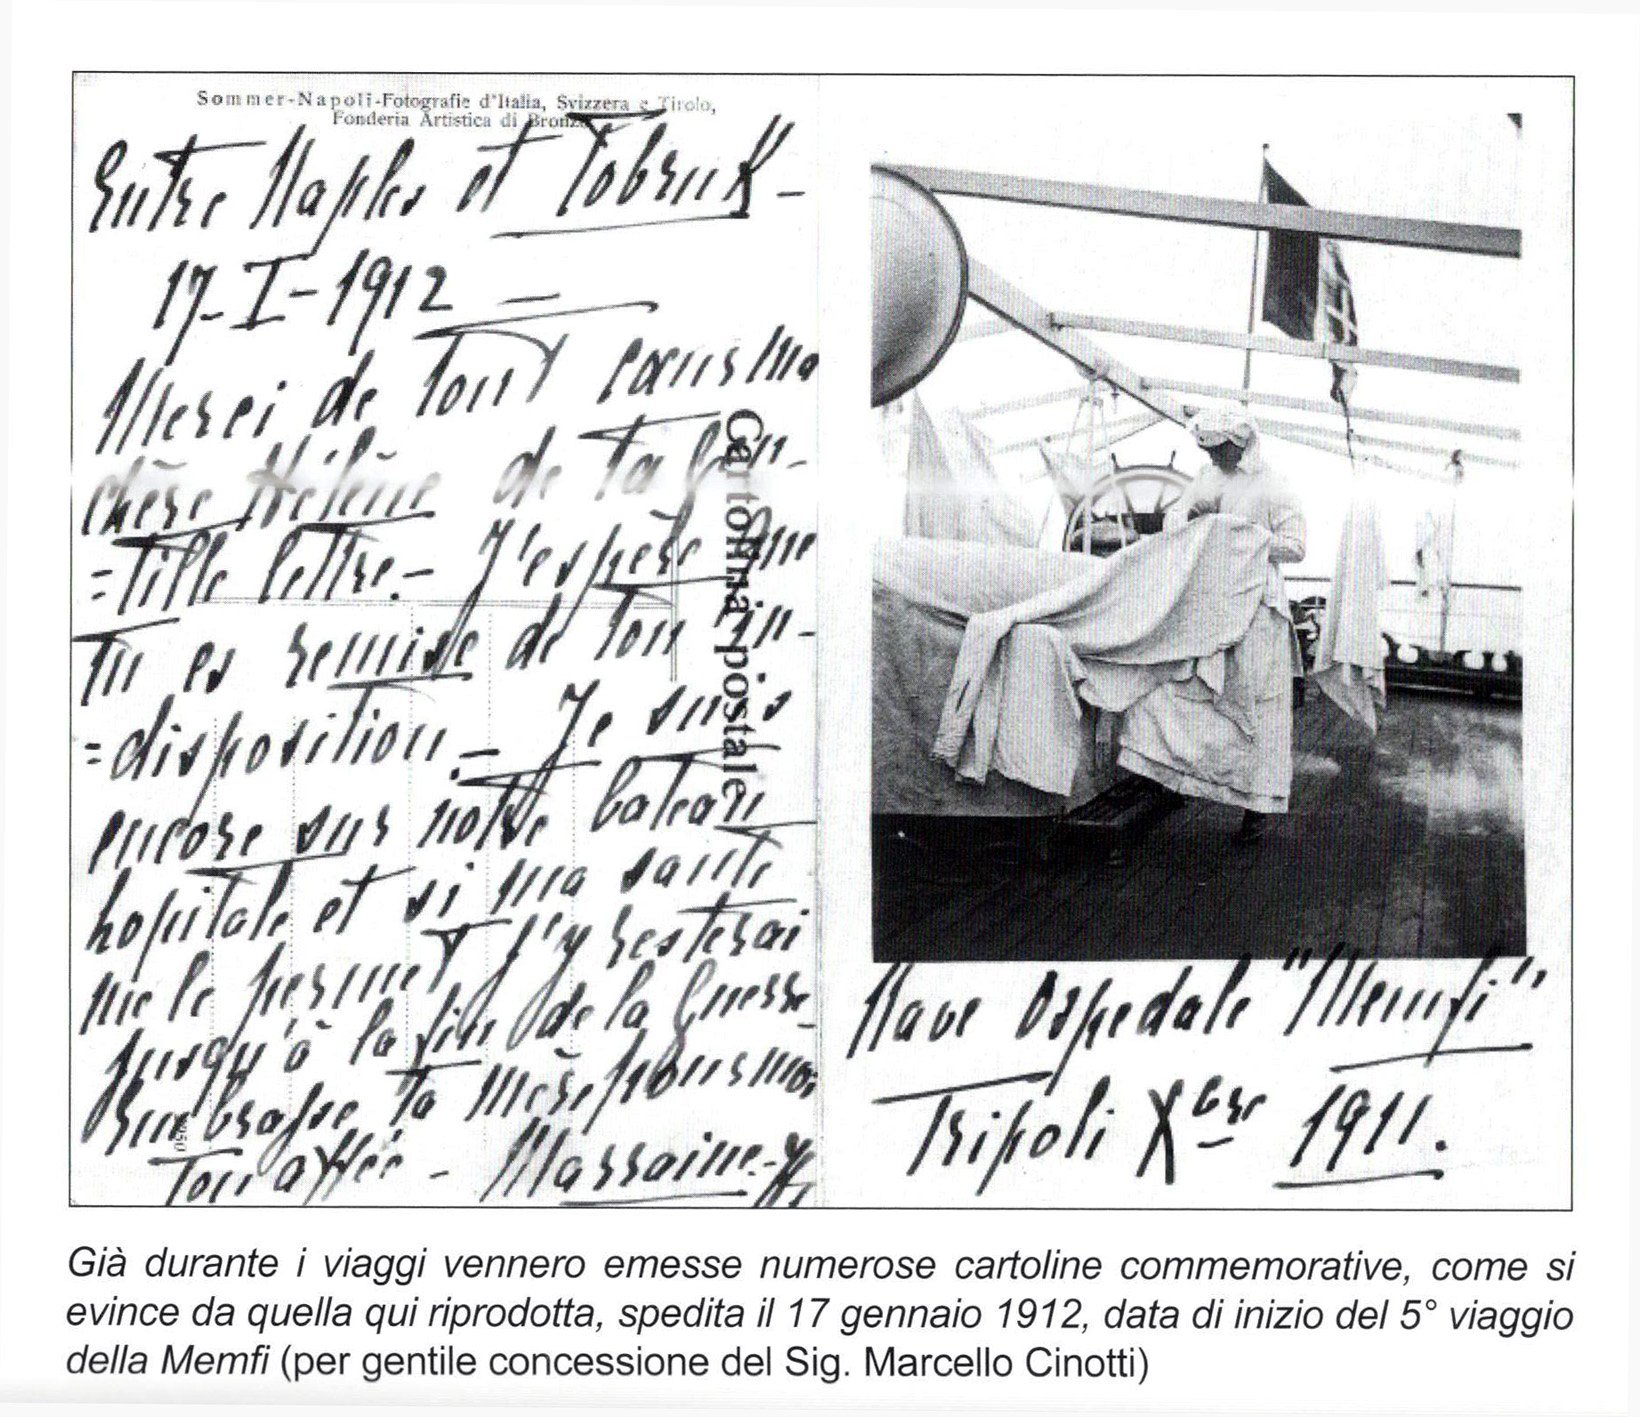 Sommer-Napoli-Fotografie d'Italia, Svizzera e Tirolo,
Fonderia Artistica di Bronzo
Entre Naples et Tobruk -
17-I-1912 -
Merci de tout coeur ma
chère Hélène de ta gen-
=tille lettre. - J'espère que
tu es remise de ton in-
=disposition. - Je suis
encore sur notre bateau
hopitale et si ma santé
me le permet j'y resterai
jusqu'à la fin de la guerre
Embrasse ta mère pour moi
Ton affée -
Cartolina postale
Nave Ospedale "Memfi"
Tripoli Xbre 1911.
Già durante i viaggi vennero emesse numerose cartoline commemorative, come si
evince da quella qui riprodotta, spedita il 17 gennaio 1912, data di inizio del 5° viaggio
della Memfi (per gentile concessione del Sig. Marcello Cinotti)